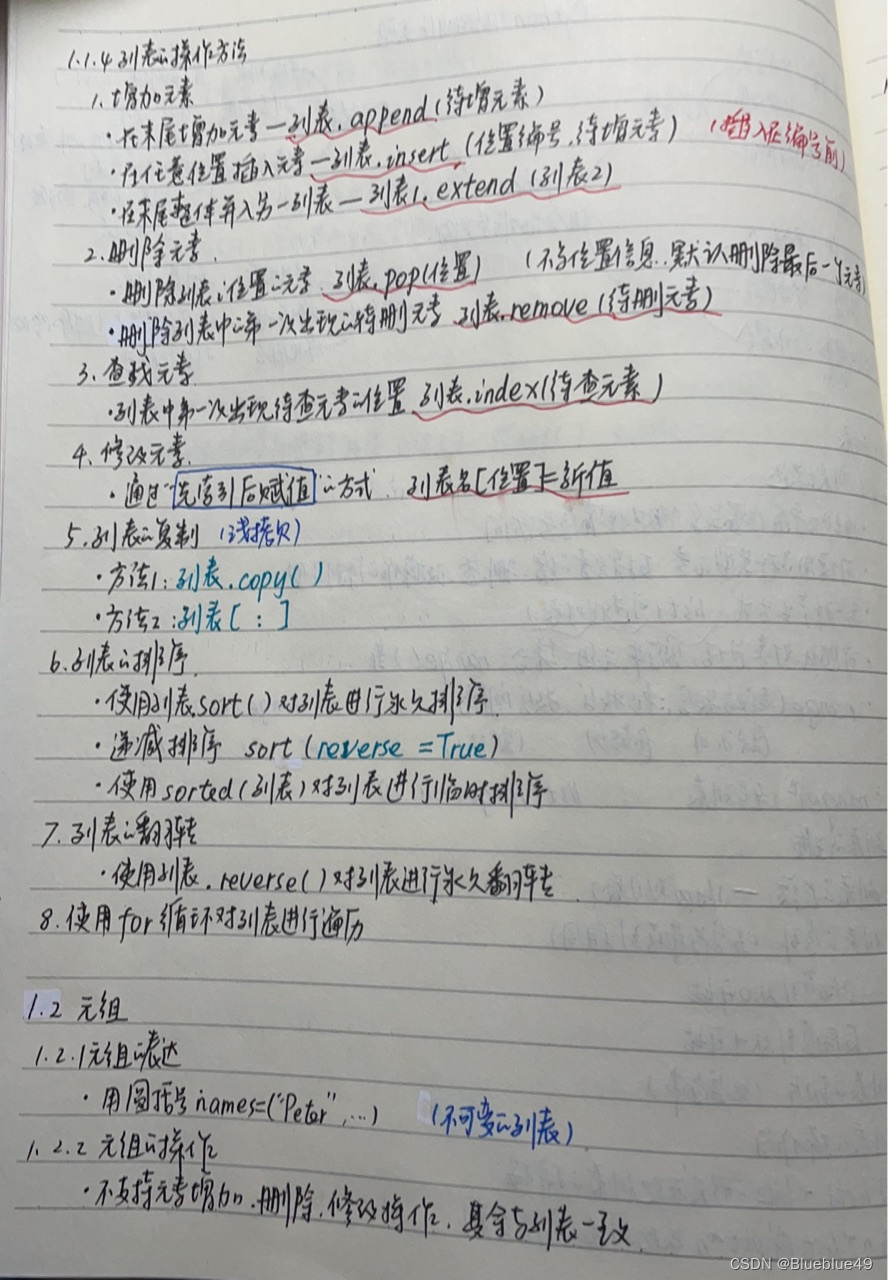 1.1.4 列表的操作方法
1. 增加元素
·在末尾增加元素—列表.append(待增元素)
·在任意位置插入元素—列表.insert(位置编号,待增元素) (插入在编号前)
·在末尾整体并入另一列表—列表1.extend(列表2)
2.删除元素.
·删除列表i位置的元素 列表.pop(位置) (不含位置信息,默认删除最后一个元素)
·删除列表中的第一次出现的待删元素 列表.remove(待删元素)
3.查找元素
·列表中第一次出现待查元素的位置 列表.index(待查元素)
4.修改元素.
·通过"先索引后赋值"的方式 列表名[位置]=新值
5.列表的复制 (浅拷贝)
·方法1:列表.copy()
·方法2:列表[:]
6.列表的排序
·使用列表.sort()对列表进行永久排序.
·递减排序 sort(reverse=True)
·使用sorted(列表)对列表进行临时排序
7.列表的翻转
·使用列表.reverse()对列表进行永久翻转.
8.使用for循环对列表进行遍历
1.2 元组
1.2.1元组的表达
·用圆括号names=("Peter",...) (不可变的列表)
1.2.2 元组的操作
·不支持元素增加.删除.修改操作,其余与列表一致
CSDN @Blueblue49